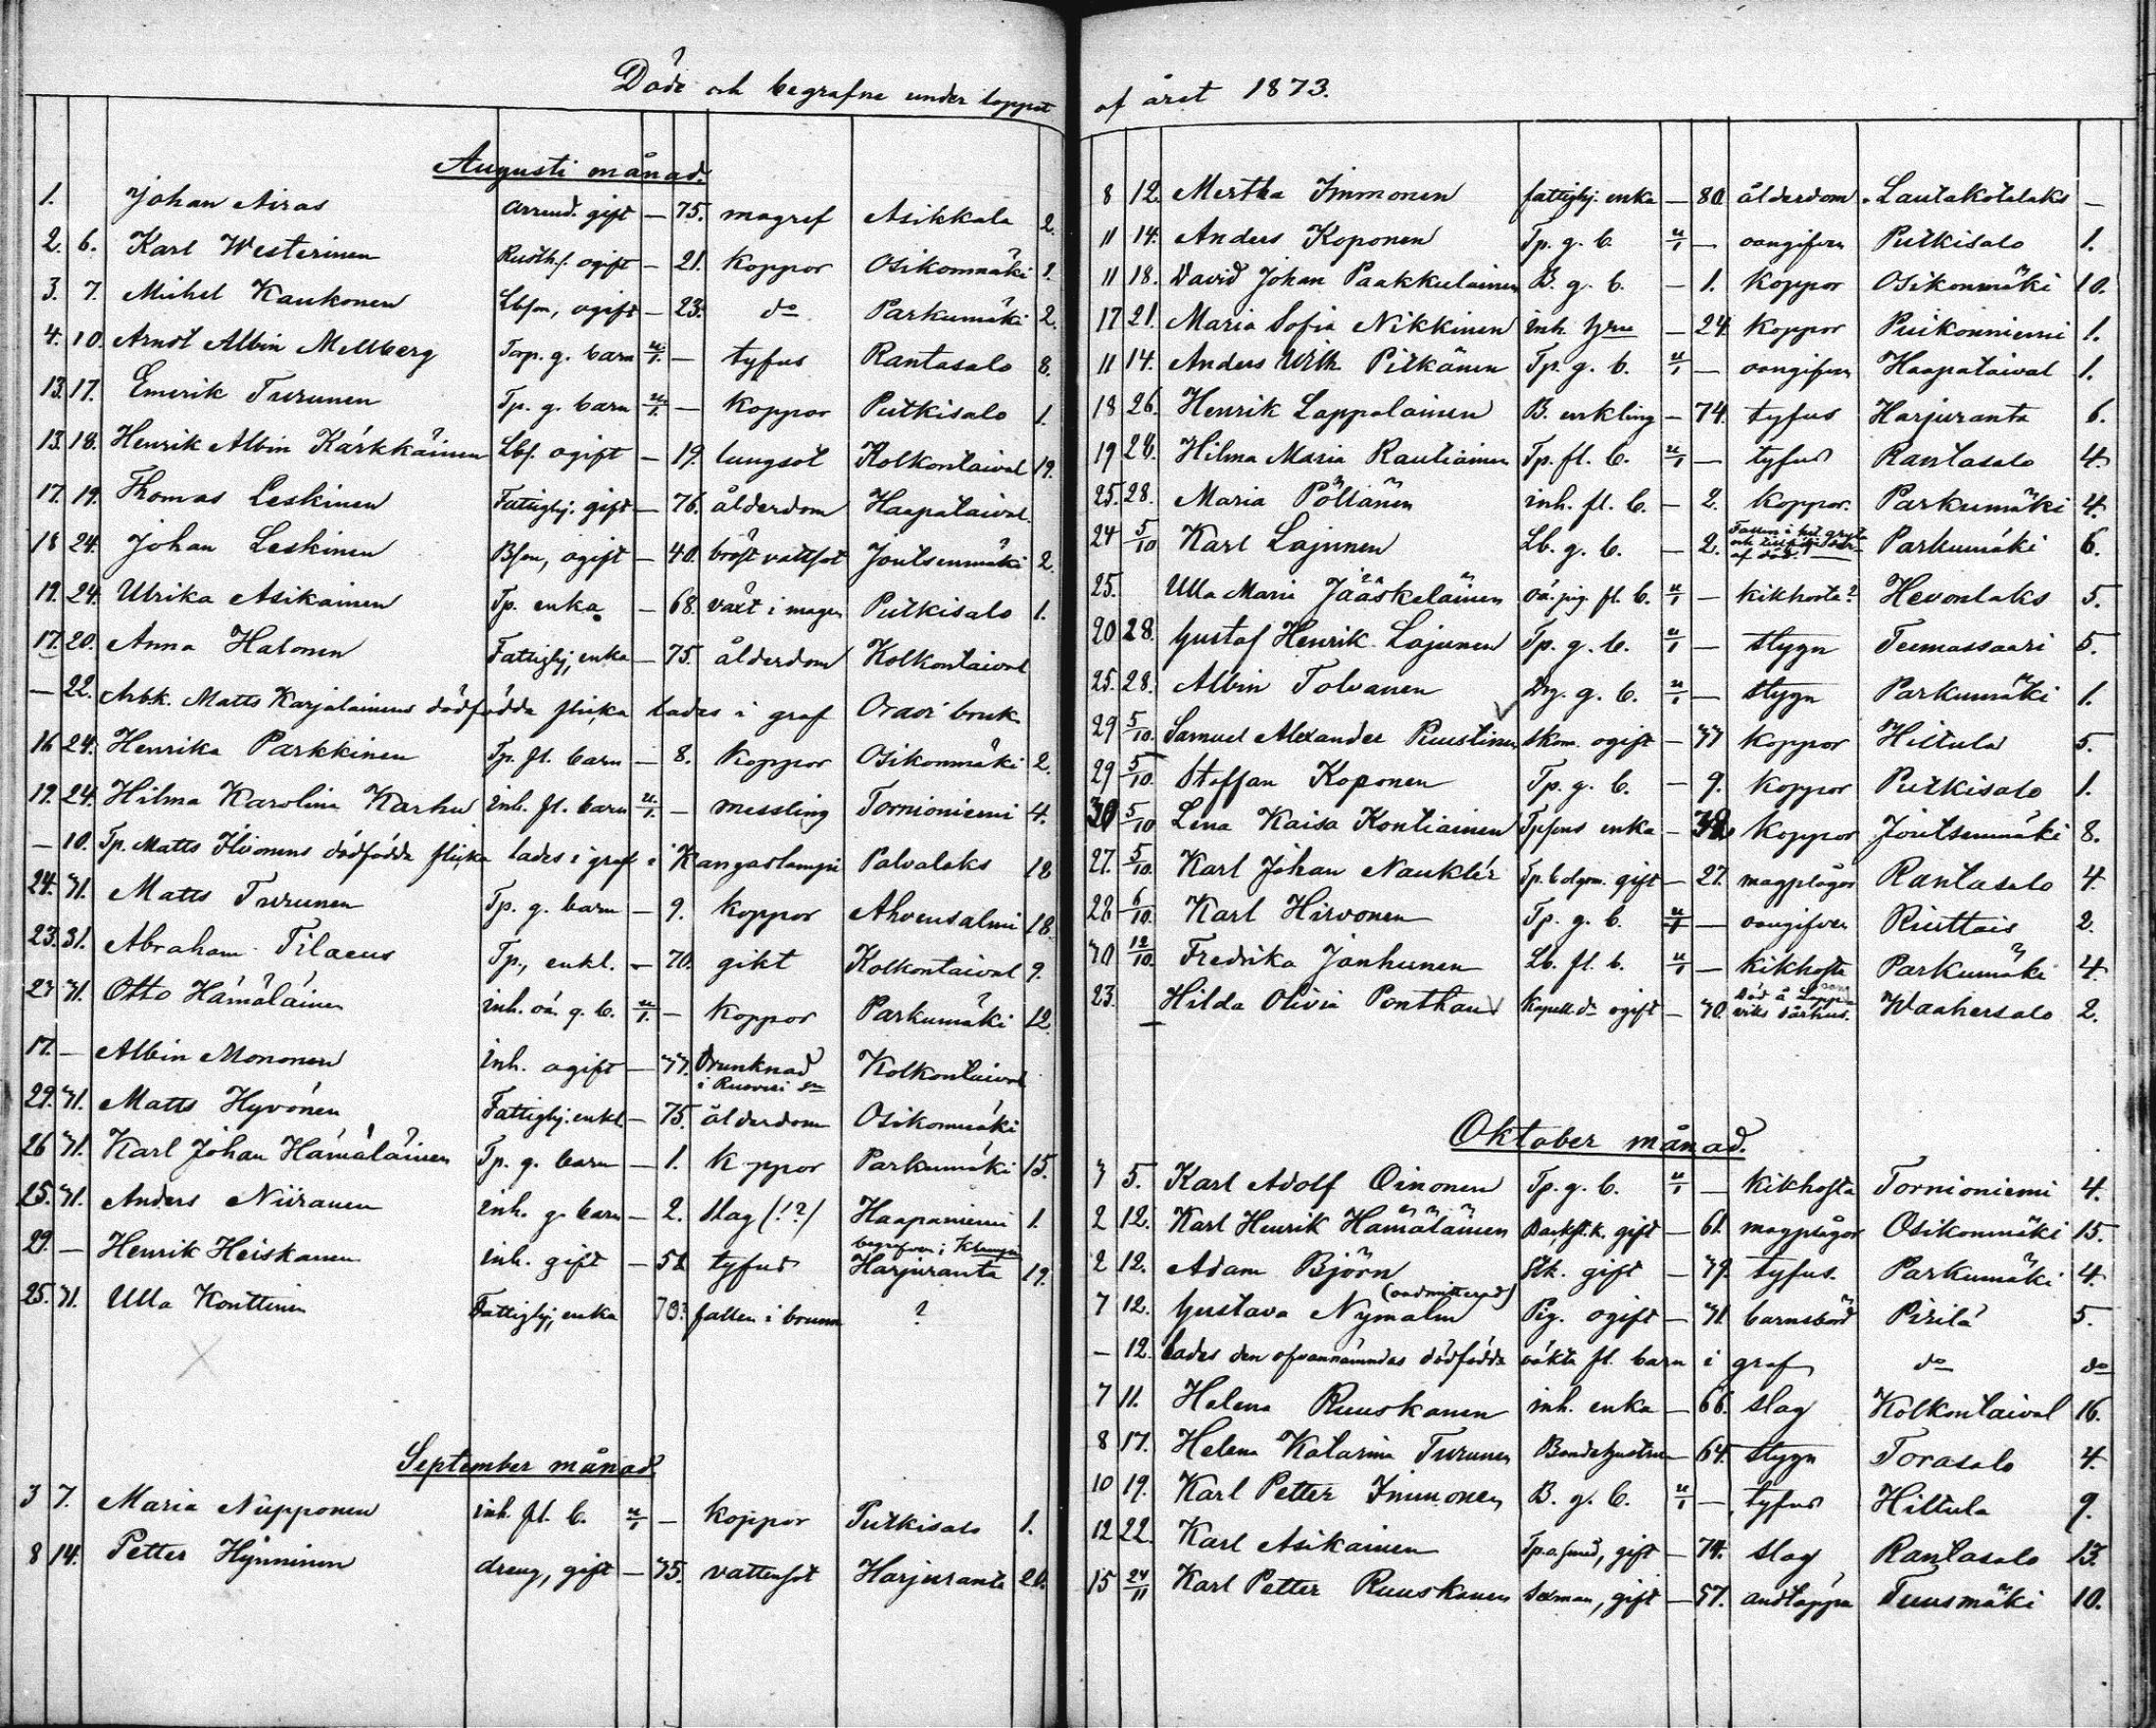 Döde och begrafne under loppet af året 1873.
Augusti månad.
1. Johan Airas arrend. gift — 75. magref Asikkala 2.
2. 6. Karl Westerinen Rusth.s. ogift — 21. koppor Osikonmäki 1.
3. 7. Mihel Kaukonen Lbson, ogift — 23. do Parkumäki 2.
4. 10. Arndt Albin Mellberg Torp. g. barn u/1. — tyfus Rantasalo 8.
13. 17. Emerik Turunen Tp. g. barn u/1. — koppor Putkisalo 1.
13. 18. Henrik Albin Kärkkäinen Lbs. ogift — 19. lungsot Kolkontaival 19.
17. 19. Thomas Leskinen Fattighj. gift — 76. ålderdom Haapataival.
18 24. Johan Leskinen Bson, ogift — 40. bröst vattsot Joutsenmäki 2.
19. 24. Ulrika Asikainen Tp. enka — 68. växt i magen Putkisalo 1.
17. 20. Anna Halonen Fattighj. enka — 75. ålderdom Kolkontaival
— 22. Arb.k. Matts Karjalainens dödfödda flicka lades i graf Oravi bruk
16 24. Henrika Parkkinen Tp. fl. barn — 8. koppor Osikonmäki 2.
19. 24. Hilma Karolina Karhu inh. fl. barn u/1. — messling Tornioniemi 4.
— 10. Tp. Matts Ilvonens dödfödda flicka lades i graf i Kangaslampi Palvalaks 18
24. 31. Matts Turunen Tp. g. barn — 9. koppor Ahvensalmi 18.
23. 31. Abraham Tilaeus Tp., enkl. — 70. gikt Kolkontaival 9.
23 31. Otto Hämäläinen inh. oä. g. b. u/1. — koppor Parkumäki 12.
17. — Albin Mononen inh. ogift — 33. Drunknad Kolkontaival
29. 31. Matts Hyvönen Fattighj. enkl — 75. ålderdom Osikonmäki
26 31. Karl Johan Hämäläinen Tp. g. barn — 1. koppor Parkumäki 15.
25. 31. Anders Niiranen inh. g. barn — 2. slag (!?) Haapaniemi 1.
29. — Henrik Heiskanen inh. gift — 58 tyfus begrafven i Klampi Harjuranta 19.
25. 31. Ulla Konttinen Fattighj, enka 70? fallen i brunn ?
September månad.
3 7. Maria Nupponen inh. fl. b. u/1 — koppor Putkisalo 1.
8 14. Petter Hynninen dreng, gift — 35. vattensot Harjuranta 20.
8 12. Mertha Immonen fattighj. enka — 80. ålderdom. Lautakotalaks —
11 14. Anders Koponen Tp. g. b. u/1 — oangifven Putkisalo 1.
11 18. David Johan Paakkulainen B. g. b. — 1. koppor Osikonmäki 10.
17 21. Maria Sofia Nikkinen inh. hru — 24. koppor Puikonniemi 1.
11 14. Anders Wilh. Pitkänen Tp. g. b. u/1 — oangifven Haapataival 1.
18 26. Henrik Lappalainen B. enkling — 74. tyfus Harjuranta 6.
19 28. Hilma Maria Rautiainen Tp. fl. b. u/1 — tyfus Rantasalo 4.
25. 28. Maria Pöllänen inh. fl. b. — 2. koppor. Parkumäki 4.
24 5/10 Karl Lajunen Lb. g. b. — 2. Parkumäki 6.
25. Ulla Maria Jääskeläinen oä. pig. fl. b. u/1 — kikhosta? Hevonlaks 5.
20 28. Gustaf Henrik Lajunen Tp. g. b. u/1 — stygn Teemassaari 5.
25. 28. Albin Tolvanen Drg. g. b. u/1 — stygn Parkumäki 1.
29 5/10. Samuel Alexander Puustinen skom. ogift — 33 koppor Hiltula 5.
29 5/10. Staffan Koponen Tp. g. b. — 9. koppor Putkisalo 1.
30 5/10 Lena Kaisa Kontiainen Tpsons enka — koppor Joutsenmäki 8.
27. 5/10. Karl Johan Nauklér Tp. bolgom. gift — 27. magplågor Rantasalo 4.
28 6/10. Karl Hirvonen Tp. g. b. u/1 — oangifven Riuttais 2.
30 12/10. Fredrika Janhunen Lb. fl. b. u/1 — kikhosta Parkumäki 4.
23. Hilda Olivia Ponthan Kapell. dr ogift — 30. Död å Lappviks dårhus. Waahersalo 2.
Oktober månad.
3 5. Karl Adolf Oinonen Tp. g. b. u/1 — kikhosta Tornioniemi 4.
2 12. Karl Henrik Hämäläinen Backst.k. gift — 61. magplågor Osikonmäki 15.
2 12. Adam Björn Stk. gift — 39. tyfus. Parkumäki 4.
7 12. Gustava Nymalm (oadmitterad) Pig. ogift — 31. barnsbörd Pirilä 5.
— 12. lades den ofvannämndas dödfödda oäkta fl. barn i graf do do
7 11. Helena Ruuskanen inh. enka — 66. slag Kolkontaival 16.
8 17. Helena Katarina Turunen Bondehustru — 64. stygn Torasalo 4.
10 19. Karl Petter Immonen B. g. b. u/1 — tyfus Hiltula 9.
12 22. Karl Asikainen Tp. o. smed, gift — 74. slag Rantasalo 13.
15 24/11 Karl Petter Ruuskanen sexman, gift — 57. andtäppa Tuusmäki 10.